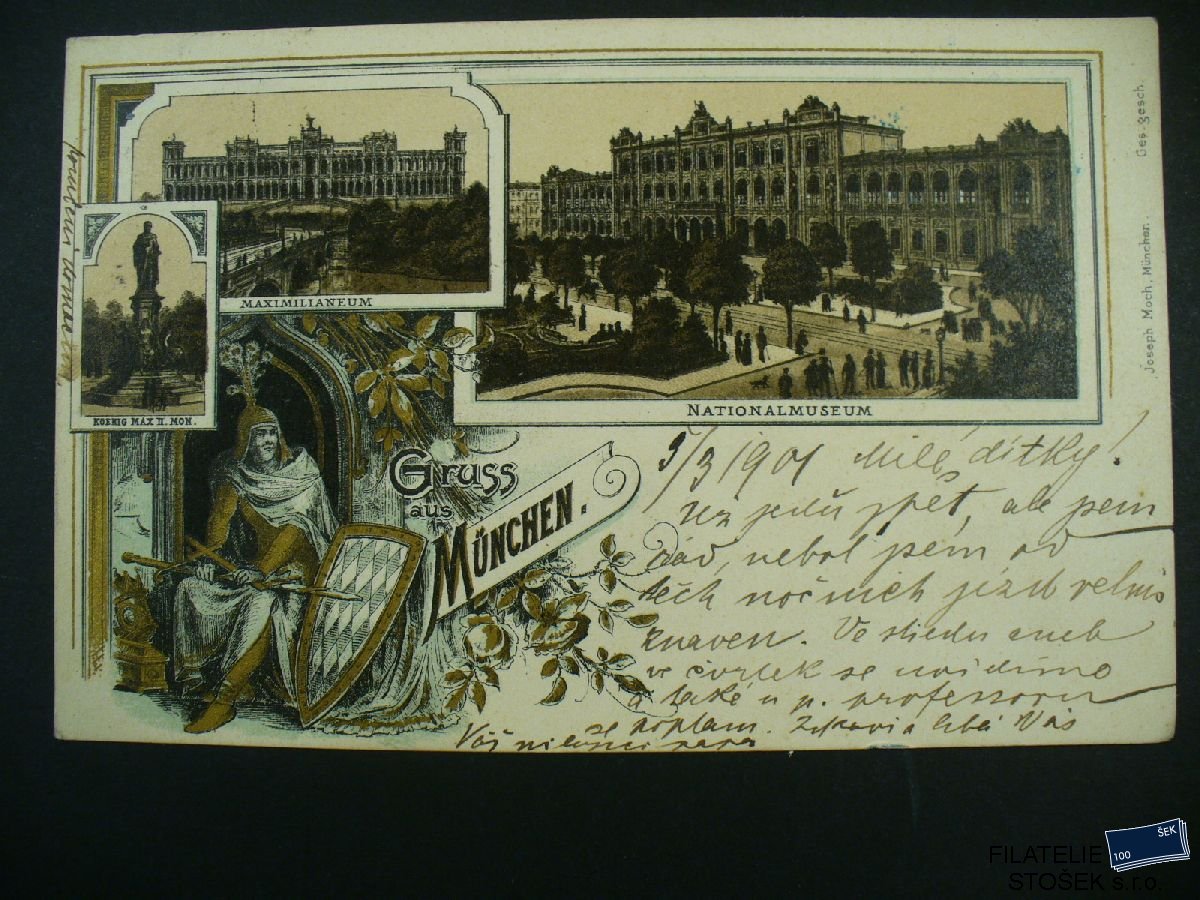 MAXIMILIANEUM
KOENIG MAX II. MON.
NATIONALMUSEUM
Joseph Moch, München. Ges. gesch.
Gruss
aus
MÜNCHEN.
3/3 1901 Milé dítky!
Už jedu zpět, ale jsem
rád, neboť jsem od
těch nočních jízd velmi
znaven. Ve středu aneb
ve čvrtek se uvidíme
a také u p. professora
se poptám. Zdraví a líbá Vás
Váš milující papa
100 ŠEK
FILATELIE
STOŠEK s.r.o.